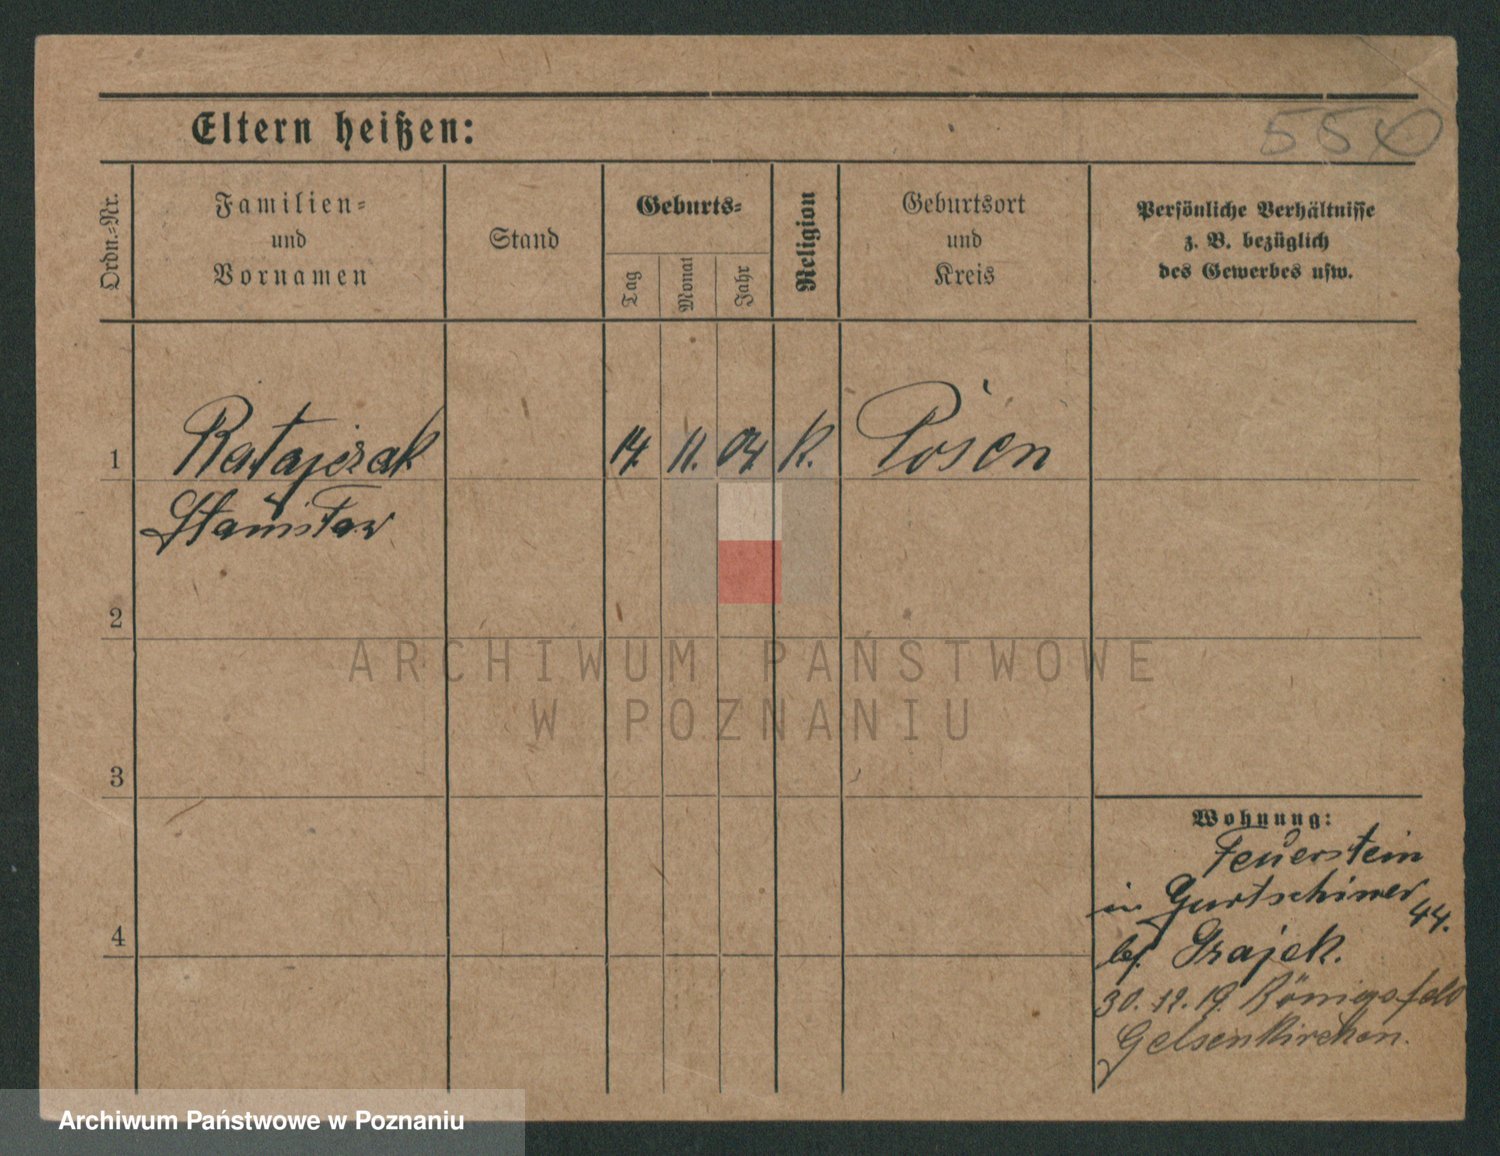 Eltern heißen:
Ordn.-Nr.
Familien-
und
Vornamen
Stand
Geburts-
Tag
Monat
Jahr
Religion
Geburtsort
und
Kreis
Persönliche Verhältnisse
z. B. bezüglich
des Gewerbes usw.
1
Ratajczak
14. 11. 04 K. Posen
Stanisław
2
ARCHIWUM PAŃSTWOWE
W POZNANIU
3
Wohnung:
Feuerstein
in Gurtschiner
44.
bei Grajek.
4
30. 12. 19. Königsfeld
Gelsenkirchen.
Archiwum Państwowe w Poznaniu